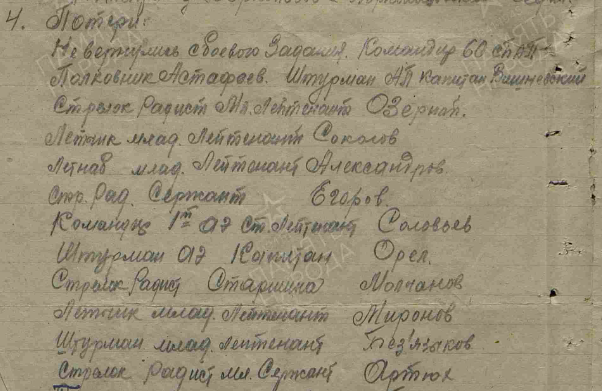 4. Потери:
Не вернулись с боевого задания. Командир 60 СПАП
Полковник Астафаев. Штурман АП капитан Вишневский
Стрелок радист Мл. Лейтенант Озёрнай.
Летчик млад. Лейтенант Соколов
Летнаб млад. Лейтенант Александров
Стр. Рад. Сержант Егоров.
Командир 1й аэ ст. Лейтенант Соловьев
Штурман аэ Капитан Орел.
Стрелок Радист Старшина Молчанов
Летчик млад. Лейтенант Миронов
Штурман млад. Лейтенант Без'языков
Стрелок радист мл. Сержант Артюх